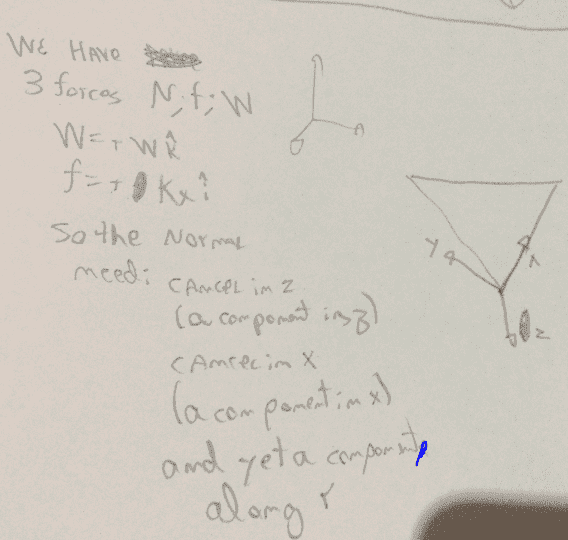 WE HAVE
3 forces N, f, W
W = + W k̂
f = + Kx î
So the Normal
need: CANCEL in z
(a component in z)
CANCEL in X
(a component in x)
and yet a component,
along r
Y
X
z